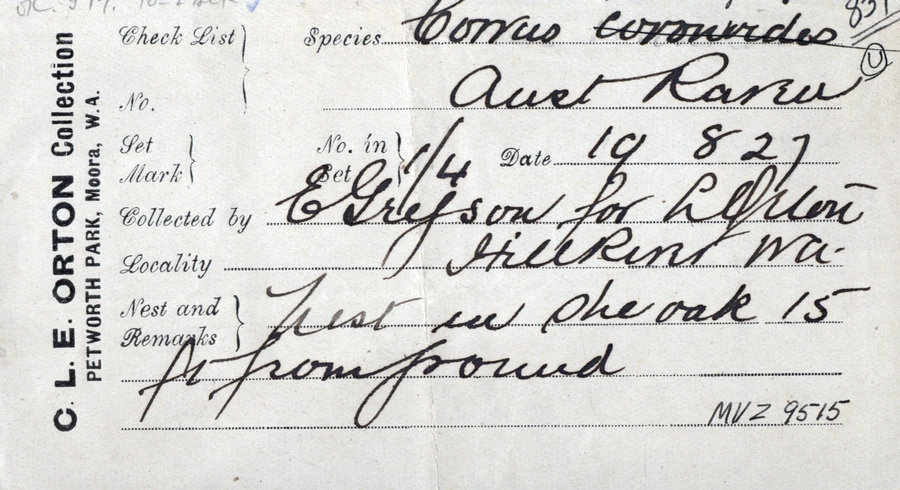 Check List Species Corvus coronoides
831
U
No. Aust Raven
Set Mark No. in Set 1/4 Date 19 8 27
Collected by E Gregson for
Locality WA.
Nest and Remarks Nest in Sheoak 15
ft from ground
MVZ 9515
C. L. E. ORTON Collection
PETWORTH PARK, Moora, W. A.